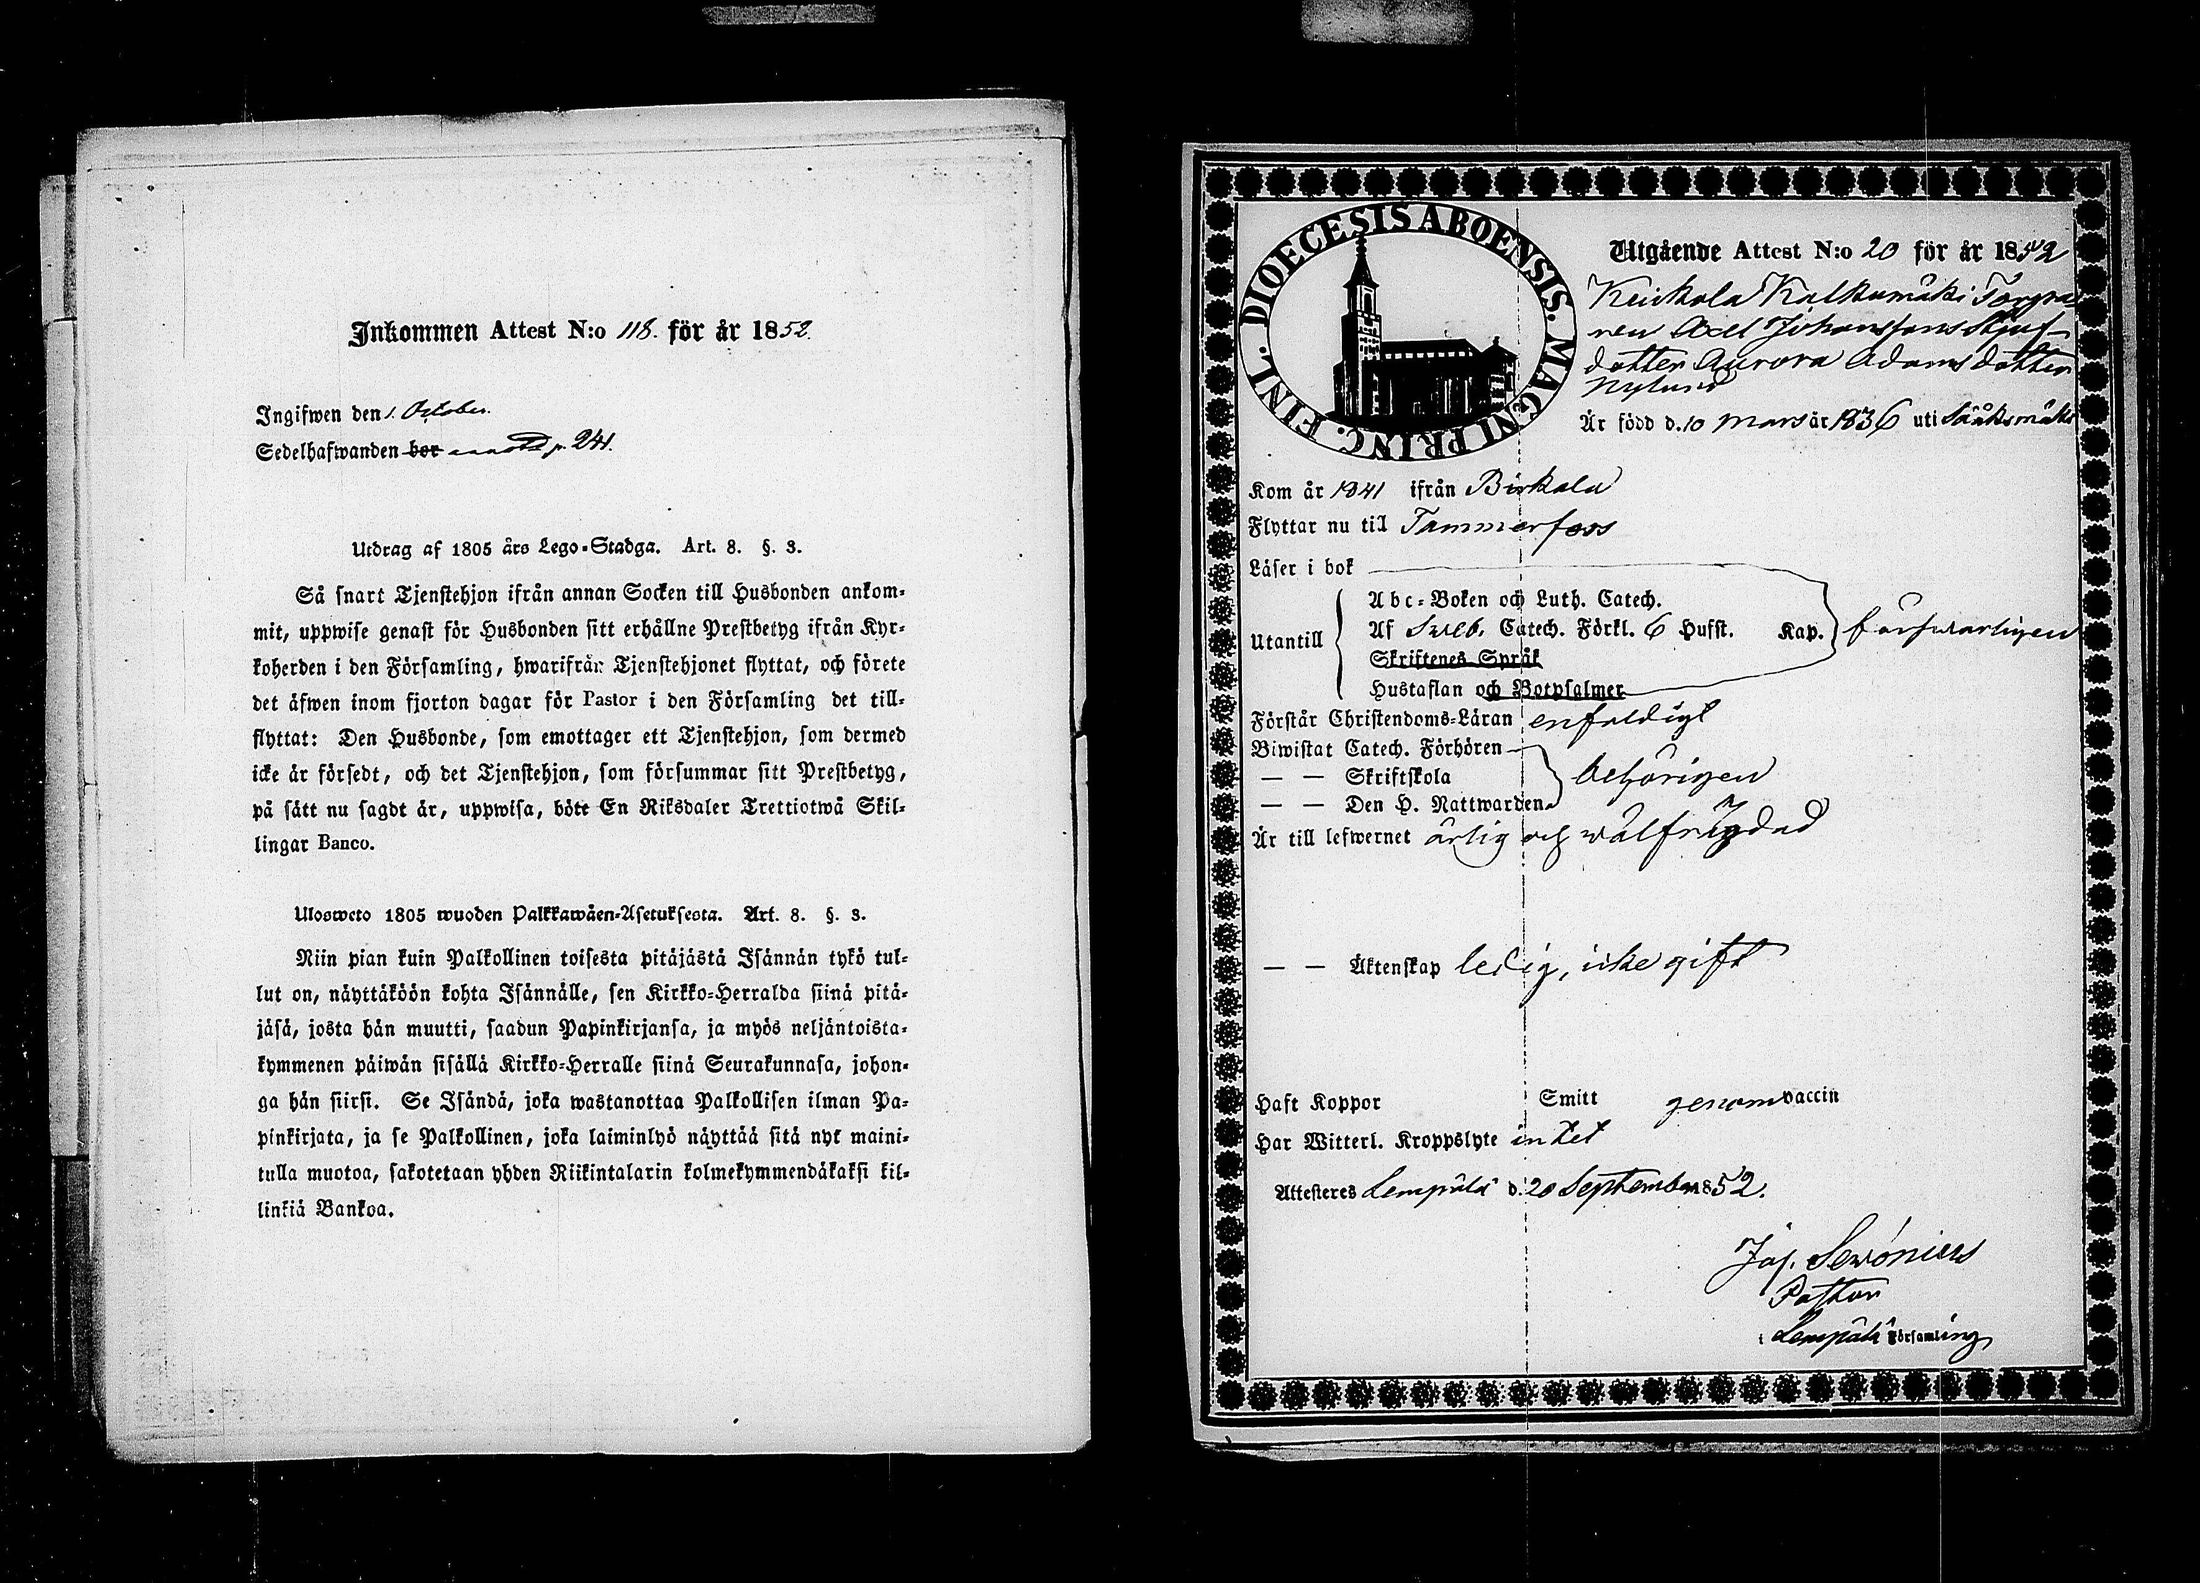 Inkommen Attest N:o 118. för år 1852.
Ingifwen den 1. October.
Sedelhafwanden bor p. 241.
Utdrag af 1805 års Lego-Stadga. Art. 8. §. 3.
Så snart Tjenstehjon ifrån annan Socken till Husbonden ankom-
mit, uppwise genast för Husbonden sitt erhållne Prestbetyg ifrån Kyr-
koherden i den Församling, hwarifrån Tjenstehjonet flyttat, och förete
det äfwen inom fjorton dagar för Pastor i den Församling det till-
flyttat: Den Husbonde, som emottager ett Tjenstehjon, som dermed
icke är försedt, och det Tjenstehjon, som försummar sitt Prestbetyg,
på sätt nu sagdt är, uppwisa, böte En Riksdaler Trettiotwå Skil-
lingar Banco.
Ulosweto 1805 wuoden Palkkawäen-Asetuksesta. Art. 8. §. 3.
Niin pian kuin Palkollinen toisesta pitäjästä Isännän tykö tul-
lut on, näyttäköön kohta Isännälle, sen Kirkko-Herralda siinä pitä-
jäsä, josta hän muutti, saadun Papinkirjansa, ja myös neljäntoista-
kymmenen päiwän sisällä Kirkko-Herralle siinä Seurakunnasa, johon-
ga hän siirsi. Se Isändä, joka wastanottaa Palkollisen ilman Pa-
pinkirjata, ja se Palkollinen, joka laiminlyö näyttää sitä nyt maini-
tulla muotoa, sakotetaan yhden Riikintalarin kolmekymmendäkaksi kil-
linkiä Bankoa.
DIOECESIS ABOENSIS. MAGNI PRINC. FINL.
Utgående Attest N:o 20 för år 1852
Keuhola Kalkumäki Torpa-
ren Axel Johanssons styf-
dotter Aurora Adamsdotter
Nylund
Är född d. 10 Mars år 1836 uti Sääksmäki
Kom år 1841 ifrån Birkala
Flyttar nu till Tammerfors
Läser i bok
Utantill
Abc-Boken och Luth. Catech.
Af Sveb. Catech. Förkl. 6 Hufst. Kap. försvarligen
Skriftenes Språk
Hustaflan och Botpsalmer
Förstår Christendoms-Läran enfaldigt
Biwistat Catech. Förhören
— — Skriftskola behörigen
— — Den H. Nattwarden
Är till lefwernet ärlig och wälfräjdad
— — Äktenskap ledig, icke gift
Haft Koppor Smitt genom vaccin
Har Witterl. Kroppslyte intet
Attesteres Lempälä d. 20 September 1852.
Jos. Serónius
Pastor
i Lempälä Församling